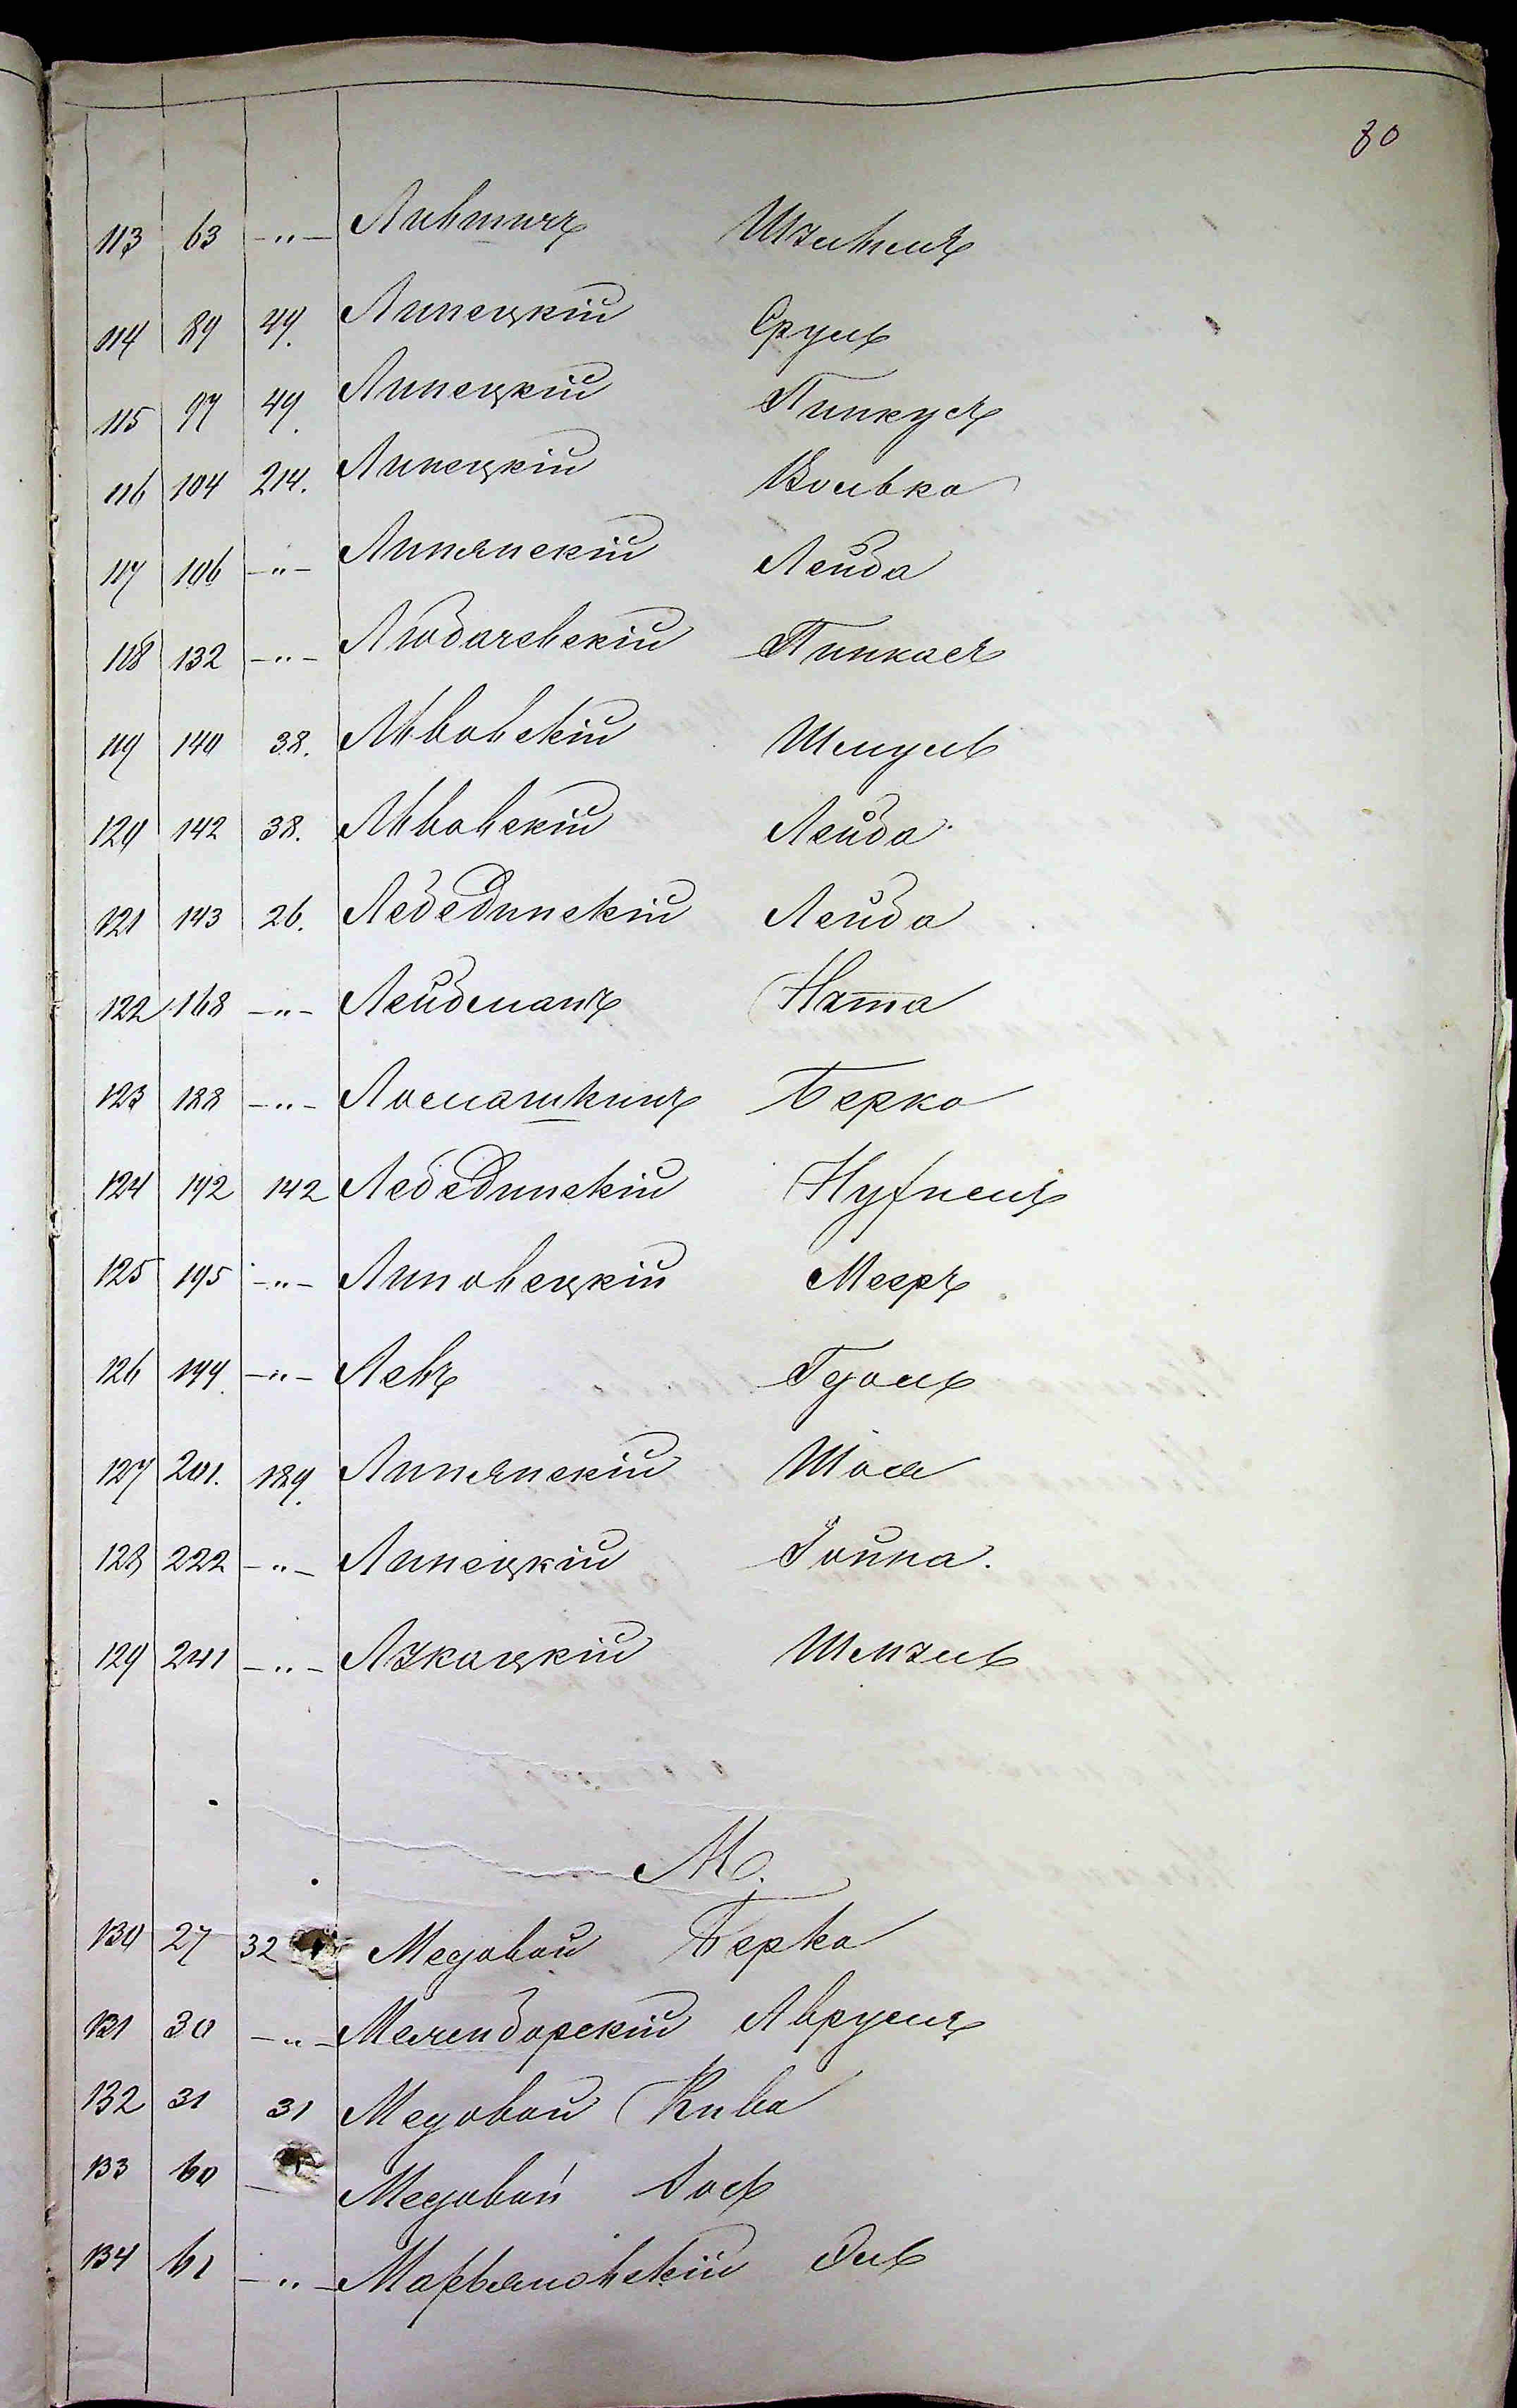 80
113 63 -"- Лившицъ Шзивель
114 89 49. Липецкій Срулъ
115 97 49. Липецкій Пинкусъ
116 104 214. Липецкій Волько
117 106 -"- Липянскій Лейба
118 132 -"- Любачевскій Пинкасъ
119 140 38. Львовскій Шмуль
120 142 38. Львовскій Лейба
121 143 26. Лебединскій Лейба
122 168 -"- Лейбманъ Натта
123 188 -"- Ломашкинъ Берко
124 192 142 Лебединскій Нухимъ
125 195 -"- Липовецкій Мееръ
126 199 -"- Левъ
127 201. 189. Липянскій
128 222 -"- Липецкій Іойна.
129 241 -"- Шмуль
М.
130 27 32 Медовой Берко
131 30 -"- Аврумъ
132 31 31 Медовой Кива
133 60 Медовой Іось
134 61 -"- Марьяновскій Эль